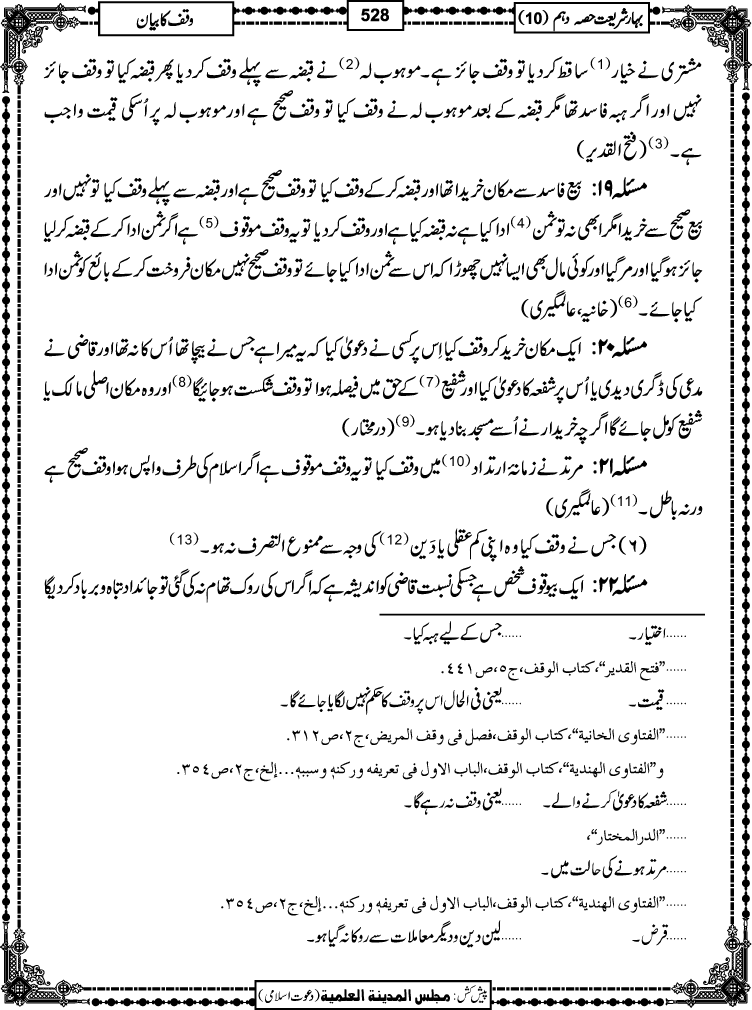 بہار شریعت حصہ دہم (10)
528
وقف کا بیان
مشتری نے خیار (1) ساقط کردیا تو وقف جائز ہے۔ موہوب لہ (2) نے قبضہ سے پہلے وقف کردیا پھر قبضہ کیا تو وقف جائز
نہیں اور اگر ہبہ فاسد تھا مگر قبضہ کے بعد موہوب لہ نے وقف کیا تو وقف صحیح ہے اور موہوب لہ پر اُسکی قیمت واجب
ہے۔ (3) (فتح القدیر)
مسئلہ ۱۹: بیع فاسد سے مکان خریدا تھا اور قبضہ کرکے وقف کیا تو وقف صحیح ہے اور قبضہ سے پہلے وقف کیا تو نہیں اور
بیع صحیح سے خریدا مگر ابھی نہ تو ثمن (4) ادا کیا ہے نہ قبضہ کیا ہے اور وقف کردیا تو یہ وقف موقوف (5) ہے اگر ثمن ادا کرکے قبضہ کرلیا
جائز ہوگیا اور مرگیا اور کوئی مال بھی ایسا نہیں چھوڑا کہ اس سے ثمن ادا کیا جائے تو وقف صحیح نہیں مکان فروخت کرکے بائع کو ثمن ادا
کیا جائے۔ (6) (خانیہ، عالمگیری)
مسئلہ ۲۰: ایک مکان خرید کر وقف کیا اِس پر کسی نے دعویٰ کیا کہ یہ میرا ہے جس نے بیچا تھا اُس کا نہ تھا اور قاضی نے
مدعی کی ڈگری دیدی یا اُس پر شفعہ کا دعویٰ کیا اور شفیع (7) کے حق میں فیصلہ ہوا تو وقف شکست ہو جائیگا (8) اور وہ مکان اصلی مالک یا
شفیع کو مل جائے گا اگرچہ خریدار نے اُسے مسجد بنا دیا ہو۔ (9) (درمختار)
مسئلہ ۲۱: مرتد نے زمانۂ ارتداد (10) میں وقف کیا تو یہ وقف موقوف ہے اگر اسلام کی طرف واپس ہوا وقف صحیح ہے
ورنہ باطل۔ (11) (عالمگیری)
(۶) جس نے وقف کیا وہ اپنی کم عقلی یا دَین (12) کی وجہ سے ممنوع التصرف نہ ہو۔ (13)
مسئلہ ۲۲: ایک بیوقوف شخص ہے جسکی نسبت قاضی کو اندیشہ ہے کہ اگر اس کی روک تھام نہ کی گئی تو جائداد تباہ و برباد کردیگا
......اختیار۔ ......جس کے لیے ہبہ کیا۔
......”فتح القدیر“، کتاب الوقف، ج٥، ص٤٤١.
......قیمت۔ ......یعنی فی الحال اس پر وقف کا حکم نہیں لگایا جائے گا۔
......”الفتاوی الخانیة“، کتاب الوقف، فصل فی وقف المریض، ج٢، ص٣١٢.
و”الفتاوی الھندیة“، کتاب الوقف، الباب الاول فی تعریفہ ورکنہ وسببہ...إلخ، ج٢، ص٣٥٤.
......شفعہ کا دعویٰ کرنے والے۔ ......یعنی وقف نہ رہے گا۔
......”الدرالمختار“،
......مرتد ہونے کی حالت میں۔
......”الفتاوی الھندیة“، کتاب الوقف، الباب الاول فی تعریفہ ورکنہ...إلخ، ج٢، ص٣٥٤.
......قرض۔ ......لین دین و دیگر معاملات سے روکا نہ گیا ہو۔
پیش کش: مجلس المدینة العلمیة (دعوت اسلامی)